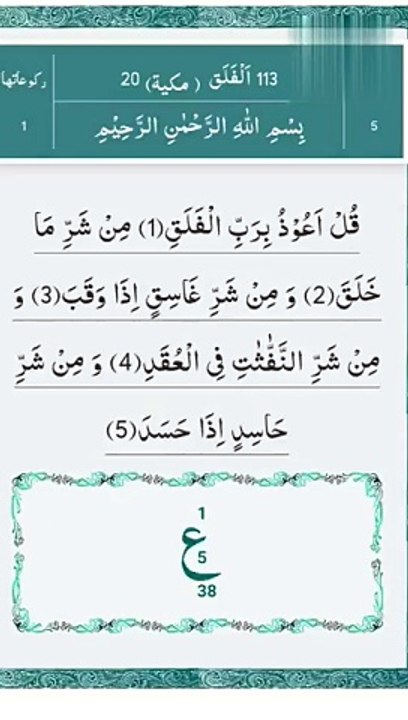 113 اَلْفَلَق (مكية) 20
ركوعاتها
5
بِسْمِ اللهِ الرَّحْمٰنِ الرَّحِيْمِ
1
قُلْ اَعُوْذُ بِرَبِّ الْفَلَقِ(1) مِنْ شَرِّ مَا
خَلَقَ(2) وَ مِنْ شَرِّ غَاسِقٍ اِذَا وَقَبَ(3) وَ
مِنْ شَرِّ النَّفّٰثٰتِ فِی الْعُقَدِ(4) وَ مِنْ شَرِّ
حَاسِدٍ اِذَا حَسَدَ(5)
1
ع
5
38